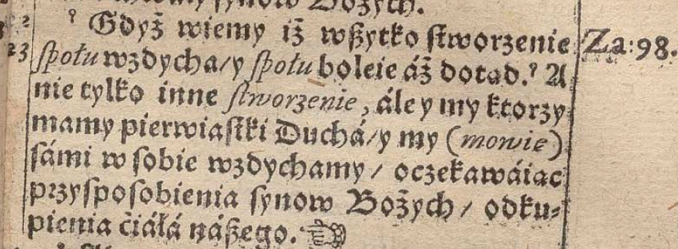 synow Bożych.
² Gdyż wiemy iż wßytko ſtworzenie Za:98.
23 ſpołu wzdycha/y ſpołu boleie áż dotąd.² A
nie tylko inne ſtworzenie, ále y my ktorzy
mamy pierwiaſtki Duchá/y my (mowię)
ſámi w ſobie wzdychamy / oczekawáiąc
przyſpoſobienia ſynow Bożych / odku⸗
pienia ćiáłá náßego. ☜